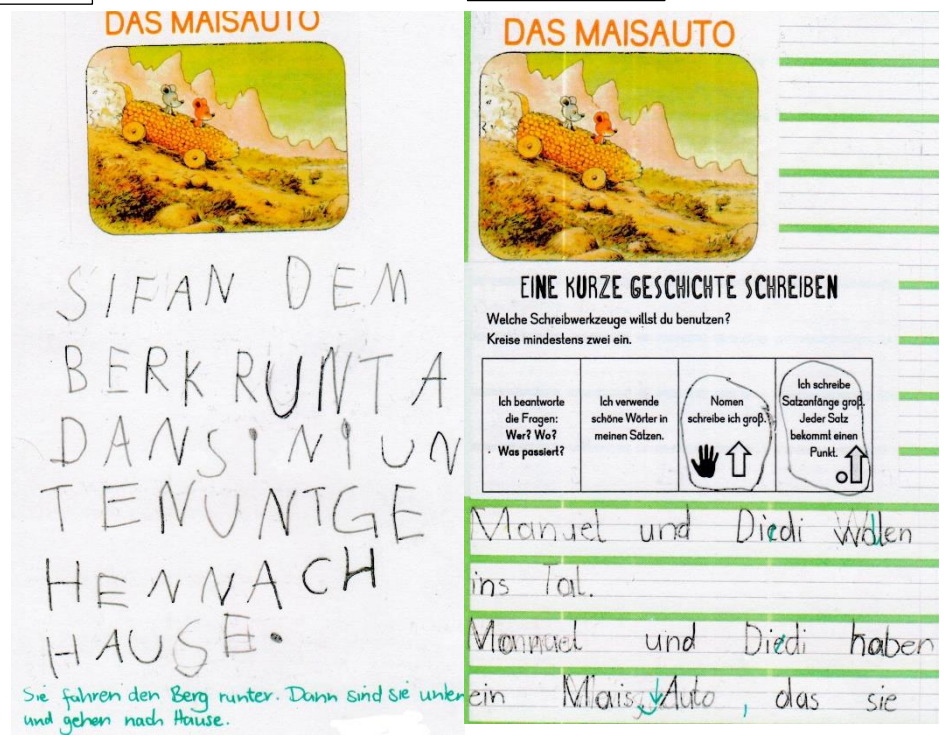 DAS MAISAUTO
SIFAN DEM
BERK RUNTA
DANSINIUN
TENUNTGE
HENNACH
HAUSE.
Sie fahren den Berg runter. Dann sind sie unten
und gehen nach Hause.
DAS MAISAUTO
EINE KURZE GESCHICHTE SCHREIBEN
Welche Schreibwerkzeuge willst du benutzen?
Kreise mindestens zwei ein.
Ich beantworte
die Fragen:
Wer? Wo?
Was passiert?
Ich verwende
schöne Wörter in
meinen Sätzen.
Nomen
schreibe ich groß.
Ich schreibe
Satzanfänge groß.
Jeder Satz
bekommt einen
Punkt.
Manuel und Diedi Wollen
ins Tal.
Manuel und Diedi haben
ein Mais Auto, das sie